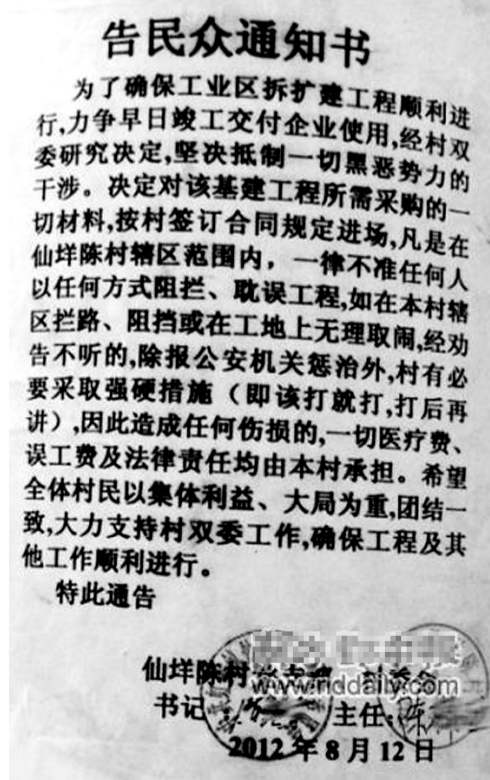 告民众通知书
为了确保工业区拆扩建工程顺利进
行,力争早日竣工交付企业使用,经村双
委研究决定,坚决抵制一切黑恶势力的
干涉。决定对该基建工程所需采购的一
切材料,按村签订合同规定进场,凡是在
仙垟陈村辖区范围内，一律不准任何人
以任何方式阻拦、耽误工程,如在本村辖
区拦路、阻挡或在工地上无理取闹,经劝
告不听的,除报公安机关惩治外,村有必
要采取强硬措施（即该打就打,打后再
讲）,因此造成任何伤损的,一切医疗费、
误工费及法律责任均由本村承担。希望
全体村民以集体利益、大局为重,团结一
致,大力支持村双委工作,确保工程及其
他工作顺利进行。
特此通告
仙垟陈村
书记 主任:陈
www.nddaily.com
2012年8月12日